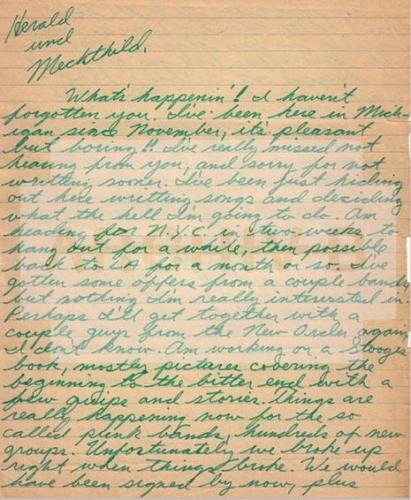 Herald
und
Mechthild.
What's happenin'! I haven't
forgotten you. I've been here in Mich-
igan since November, it's pleasant
but boring!! I've really missed not
hearing from you, and sorry for not
writting sooner. I've been just hiding
out here writting songs and deciding
what the hell I'm going to do. Am
heading for N.Y.C. in two weeks, to
hang out for a while, then possible
back to LA for a month or so. I've
gotten some offers from a couple bands
but nothing I'm really interested in.
Perhaps I'll get together with a
couple guys from the New Order again,
I don't know. Am working on a Stooges
book, mostly pictures covering the
beginning to the bitter end with a
few quips and stories. Things are
really happening now for the so
called punk bands, hundreds of new
groups. Unfortunately we broke up
right when things broke. We would
have been signed by now, plus